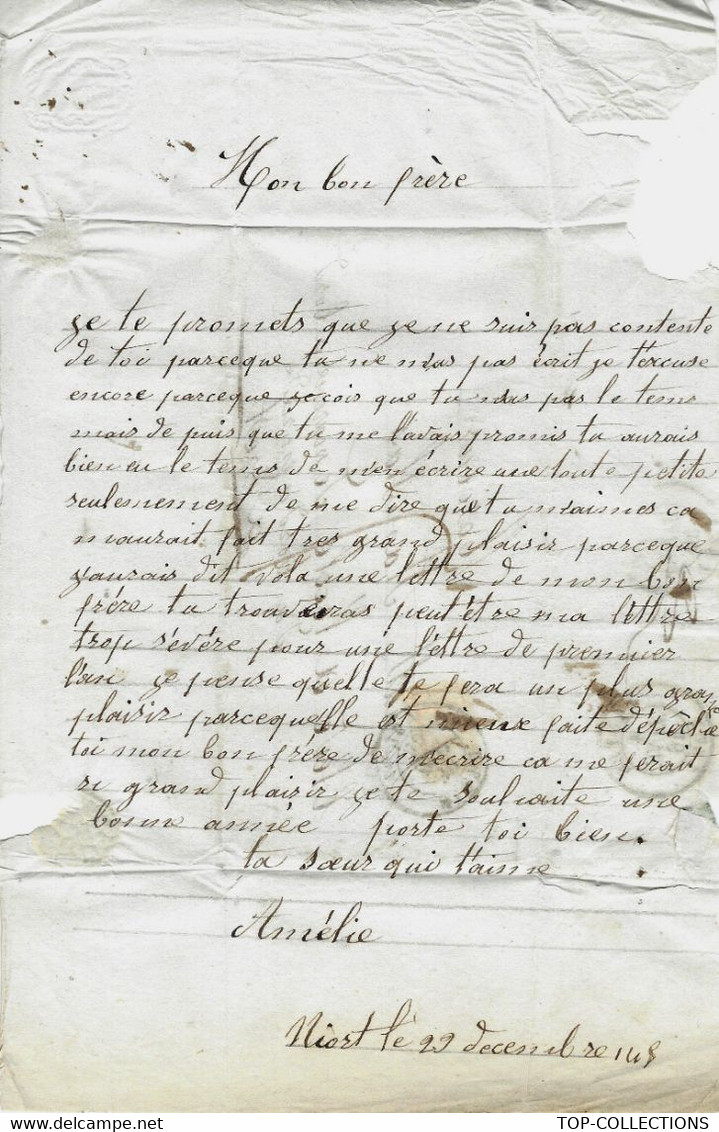 Mon bon frère
je te promets que je ne suis pas contente
de toi parceque tu ne mas pas écrit je t'excuse
encore parceque je cois que tu nas pas le tems
mais de puis que tu me l'avais promis tu aurais
bien eu le tems de m'en écrire une toute petite
seulemement de me dire que tu m'aimes ca
m'aurait fait tres grand plaisir parceque
j'aurais dit vola une lettre de mon bon
frére tu trouveras peut'étre ma léttre
trop sévére pour une léttre de premier
l'an je pense quelle te fera un plus grand
plaisir parcequelle est mieux faite dépeche
toi mon bon frére de m'ecrire ca me ferait
si grand plaisir je te souhaite une
bonne année porte toi bien.
ta sœur qui t'aime
Amélie
Niort le 29 decembre
TOP-COLLECTIONS